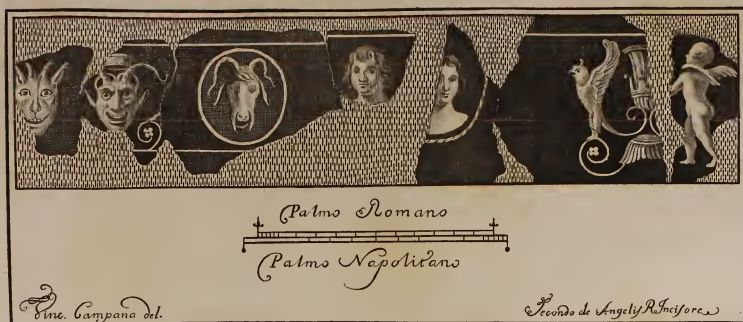 Palmo Romano
Palmo Napolitano
Vinc. Campana del.
Secondo de Angelis R. Incisore